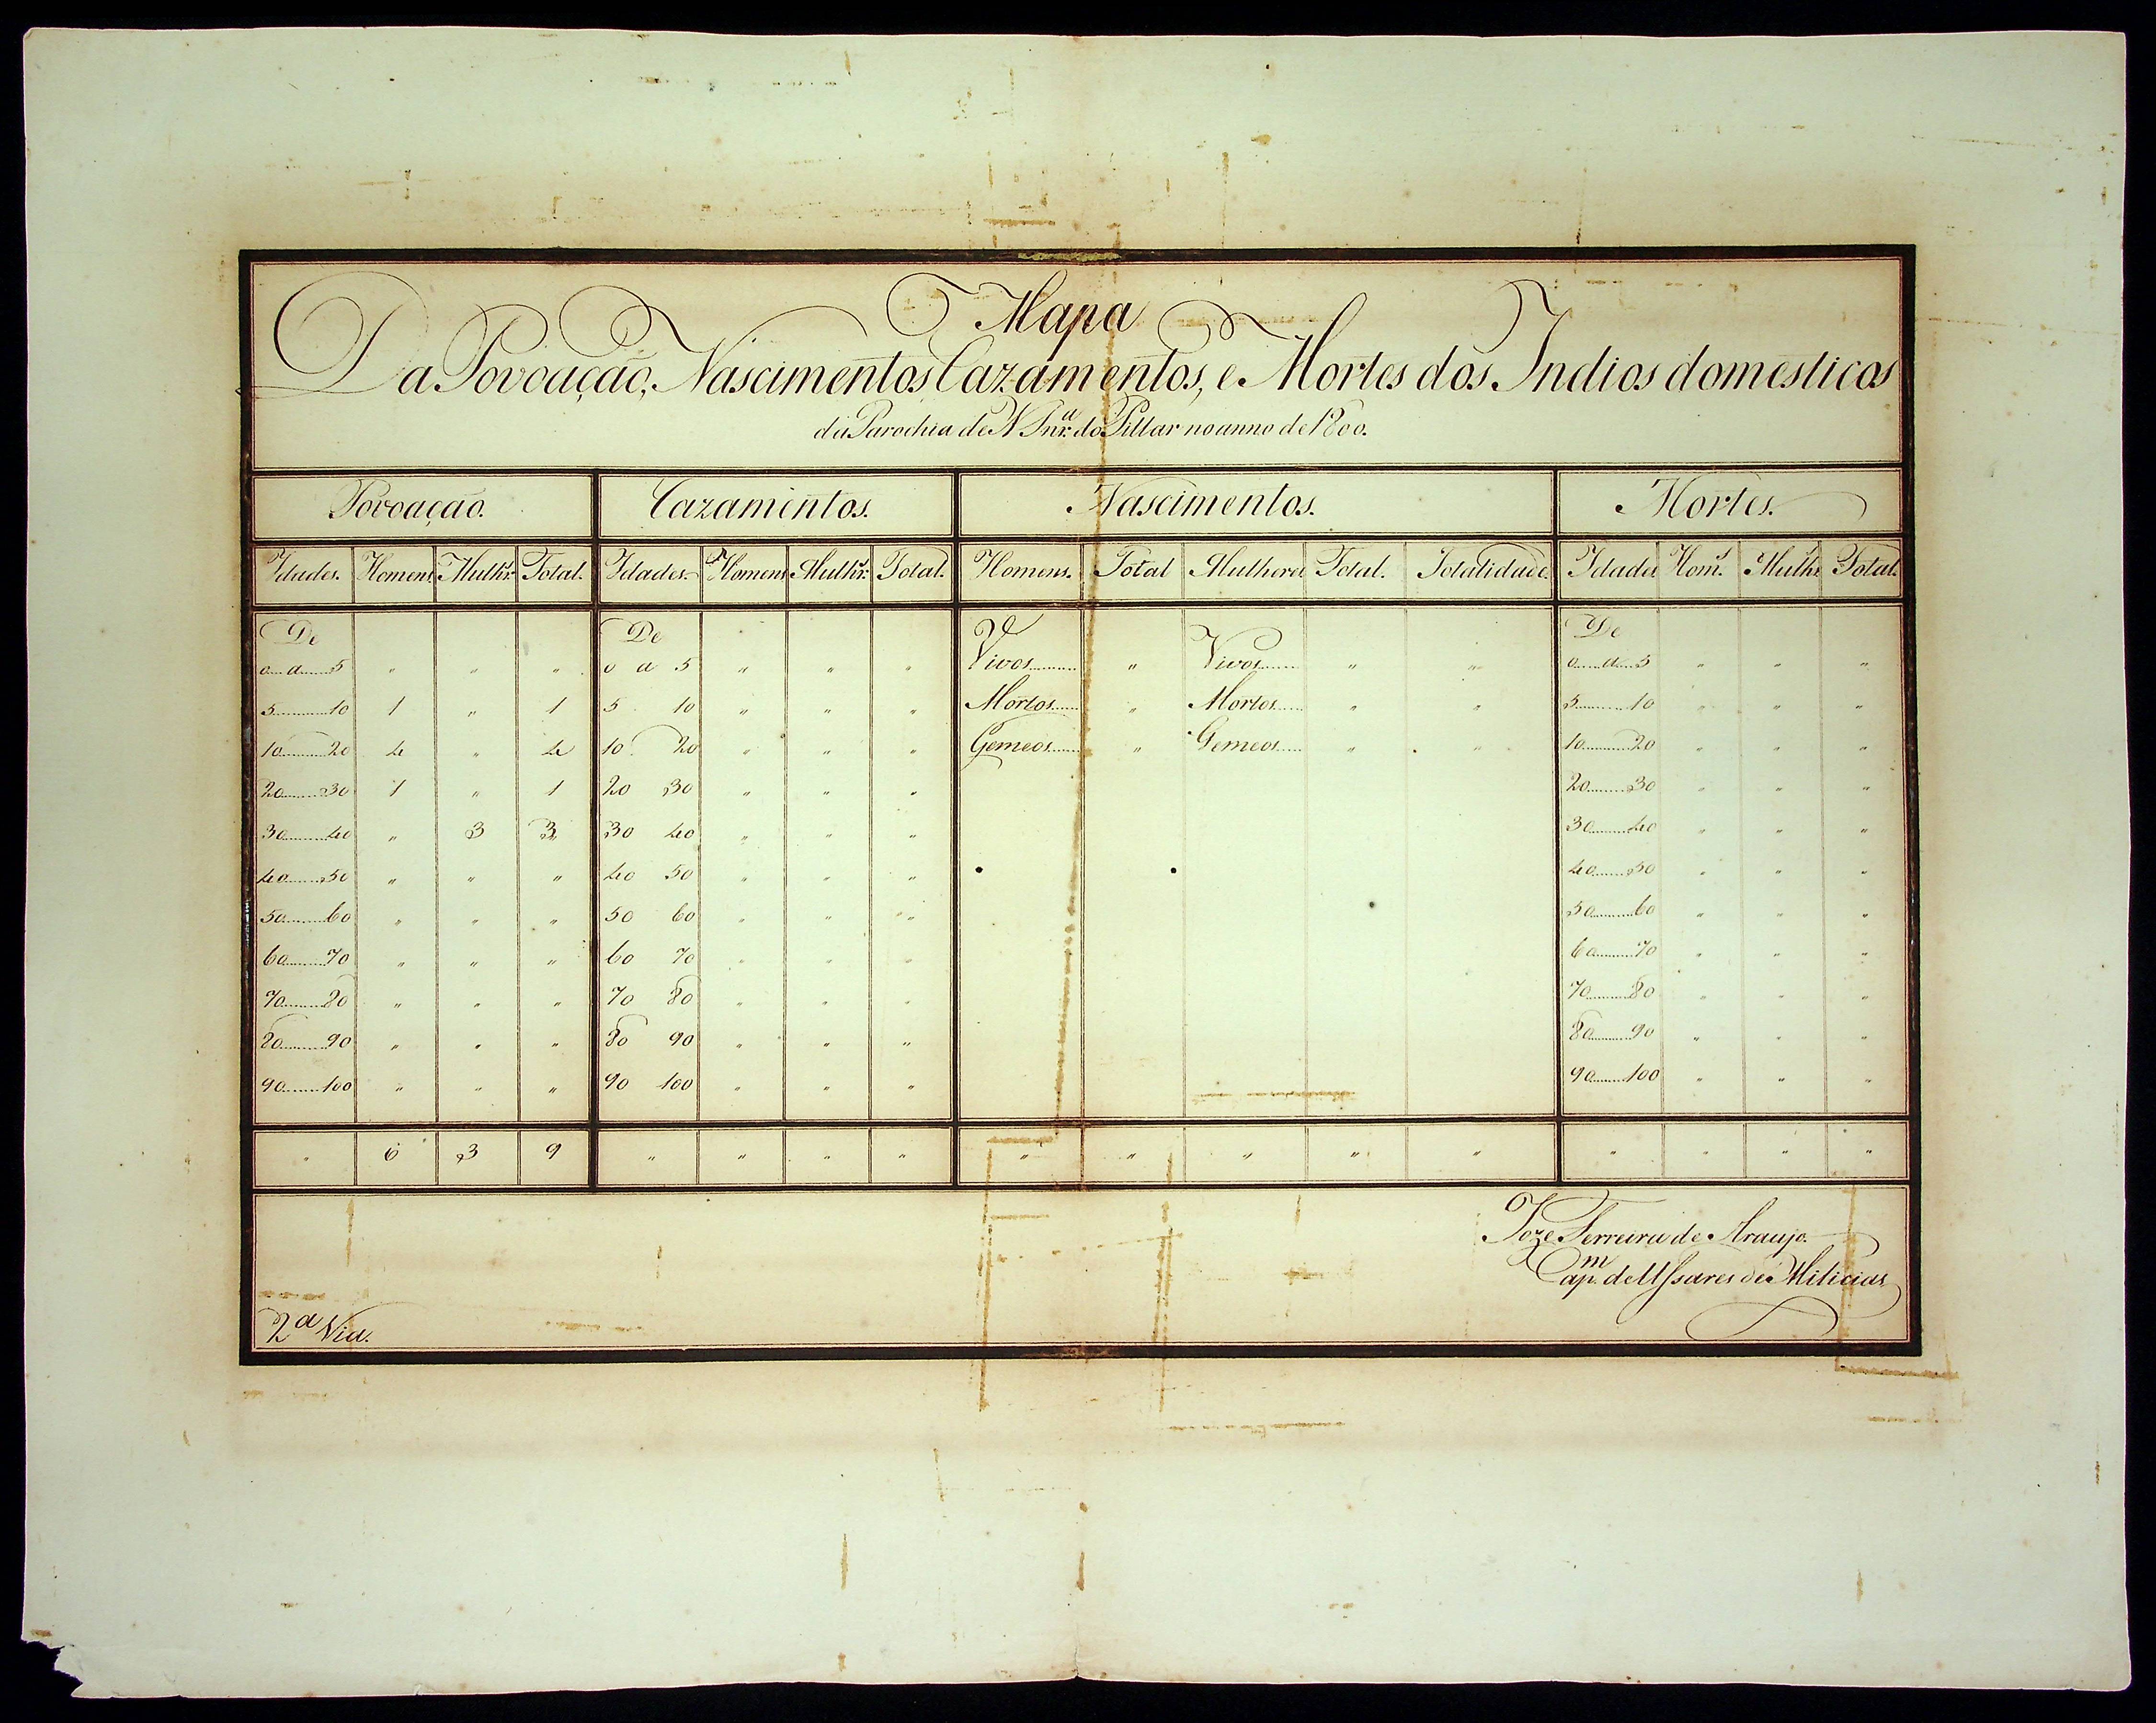 Mapa
Da Povoação, Nascimentos, Cazamentos, e Mortes dos Indios domesticos
da Parochia de N Snr.ª do Pillar no anno de 1800.
Povoação. Cazamentos. Nascimentos. Mortes.
Idades. Homens Mulhr.s Total. Idades. Homens Mulhr.s Total. Homens. Total Mulheres Total. Totalidade. Idades Hom.s Mulhs Total.
De De De
0 a 5 " " " 0 a 5 " " " Vivos " Vivos " " 0 a 5 " " "
5 10 1 " 1 5 10 " " " Mortos " Mortos " " 5 10 " " "
10 20 4 " 4 10 20 " " " Gemeos " Gemeos " " 10 20 " " "
20 30 1 " 1 20 30 " " " 20 30 " " "
30 40 " 3 3 30 40 " " " 30 40 " " "
40 50 " " " 40 50 " " " 40 50 " " "
50 60 " " " 50 60 " " " 50 60 " " "
60 70 " " " 60 70 " " " 60 70 " " "
70 80 " " " 70 80 " " " 70 80 " " "
80 90 " " " 80 90 " " " 80 90 " " "
90 100 " " " 90 100 " " " 90 100 " " "
" 6 3 9 " " " " " " " " " " " " "
Joze Ferreira de Araujo
Cap.m de Ussares de Milicias
2ª Via.